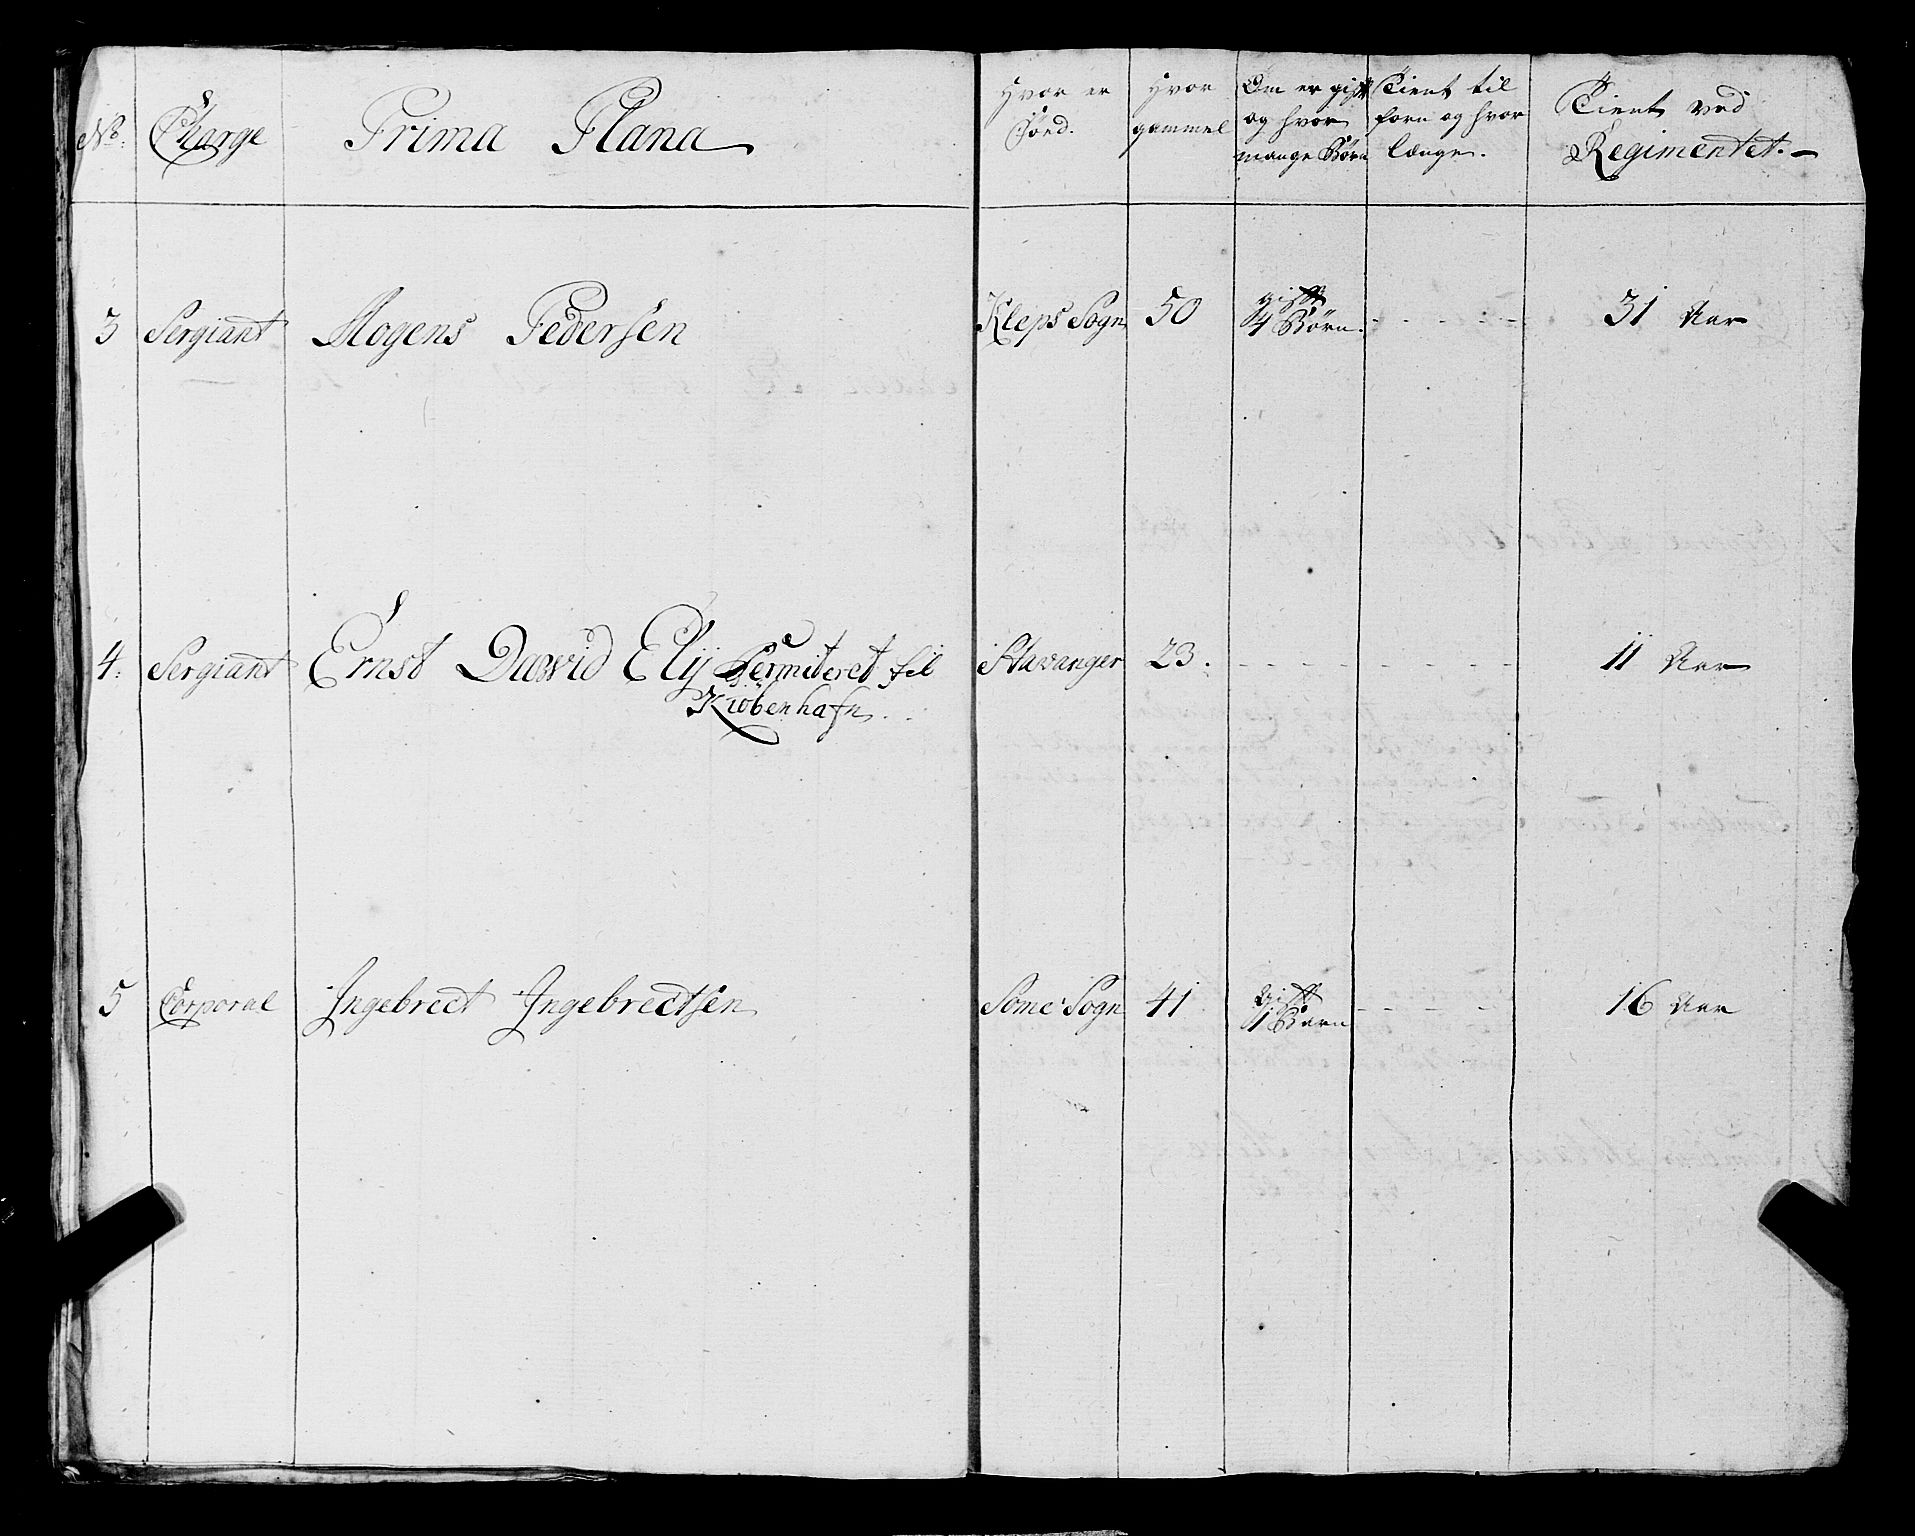 No. Charge Prima Plana
Hvor er
föed.
Hvor
gammel
Om er gift
og hvor
mange Börn
Tient til
forn og hvor
længe.
Tient ved
Regimentet.
3 Sergiant Mogens Pedersen Kleps Sogn 50 gift
4 Börn. - - - - - 31 Aar
4. Sergiant Ernst David Elij Permiteret til Stavanger 23. - - - - - - - - 11 Aar
Kiöbenhafn.
5 Corporal Ingebrect Ingebrectsen Some Sogn 41 gift
1 Barn - - - - 16 Aar